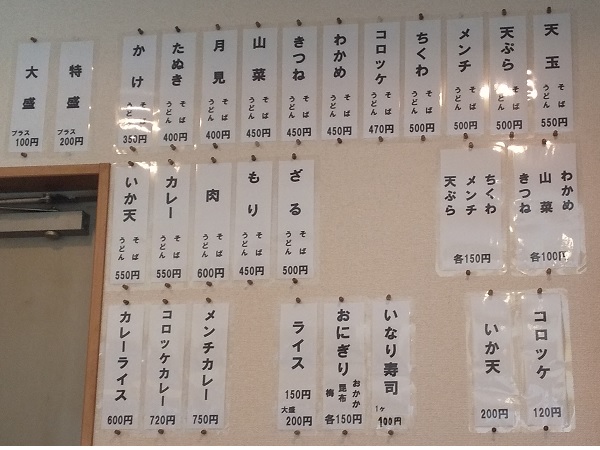 天玉 そば うどん 550円
天ぷら そば うどん 500円
メンチ そば うどん 500円
ちくわ そば うどん 500円
コロッケ そば うどん 470円
わかめ そば うどん 450円
きつね そば うどん 450円
山菜 そば うどん 450円
月見 そば うどん 400円
たぬき そば うどん 400円
かけ そば うどん 350円
特盛 プラス 200円
大盛 プラス 100円
わかめ
山菜
きつね
各100円
ちくわ
メンチ
天ぷら
各150円
ざる そば うどん 500円
もり そば うどん 450円
肉 そば うどん 600円
カレー そば うどん 550円
いか天 そば うどん 550円
コロッケ 120円
いか天 200円
いなり寿司 1ヶ 100円
おにぎり
おかか
昆布
梅
各150円
ライス 150円
大盛 200円
メンチカレー 750円
コロッケカレー 720円
カレーライス 600円